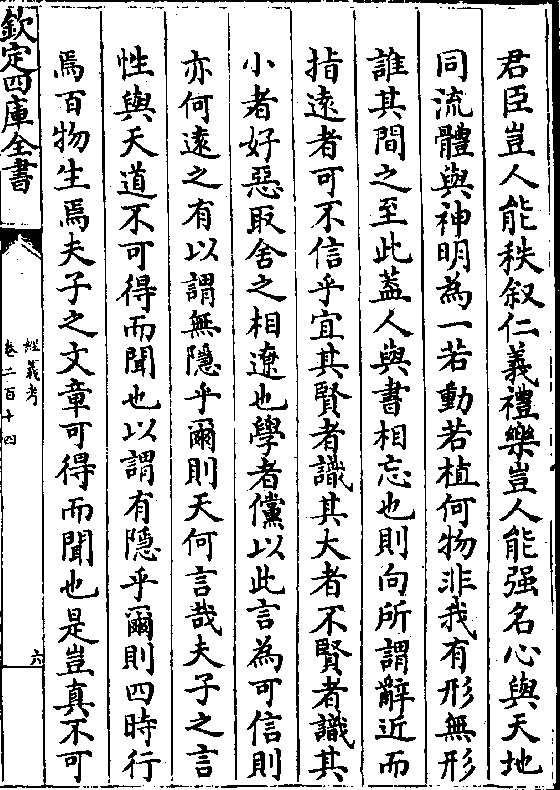 君臣豈人能秩叙仁義禮樂豈人能强名心與天地
同流體與神明為一若動若植何物非我有形無形
誰其間之至此葢人與書相忘也則向所謂辭近而
指遠者可不信乎宜其賢者識其大者不賢者識其
小者好惡取舍之相遼也學者儻以此言為可信則
亦何遠之有以謂無隱乎爾則天何言哉夫子之言
性與天道不可得而聞也以謂有隱乎爾則四時行
焉百物生焉夫子之文章可得而聞也是豈真不可
欽定四庫全書
經義考
卷二百十四
六